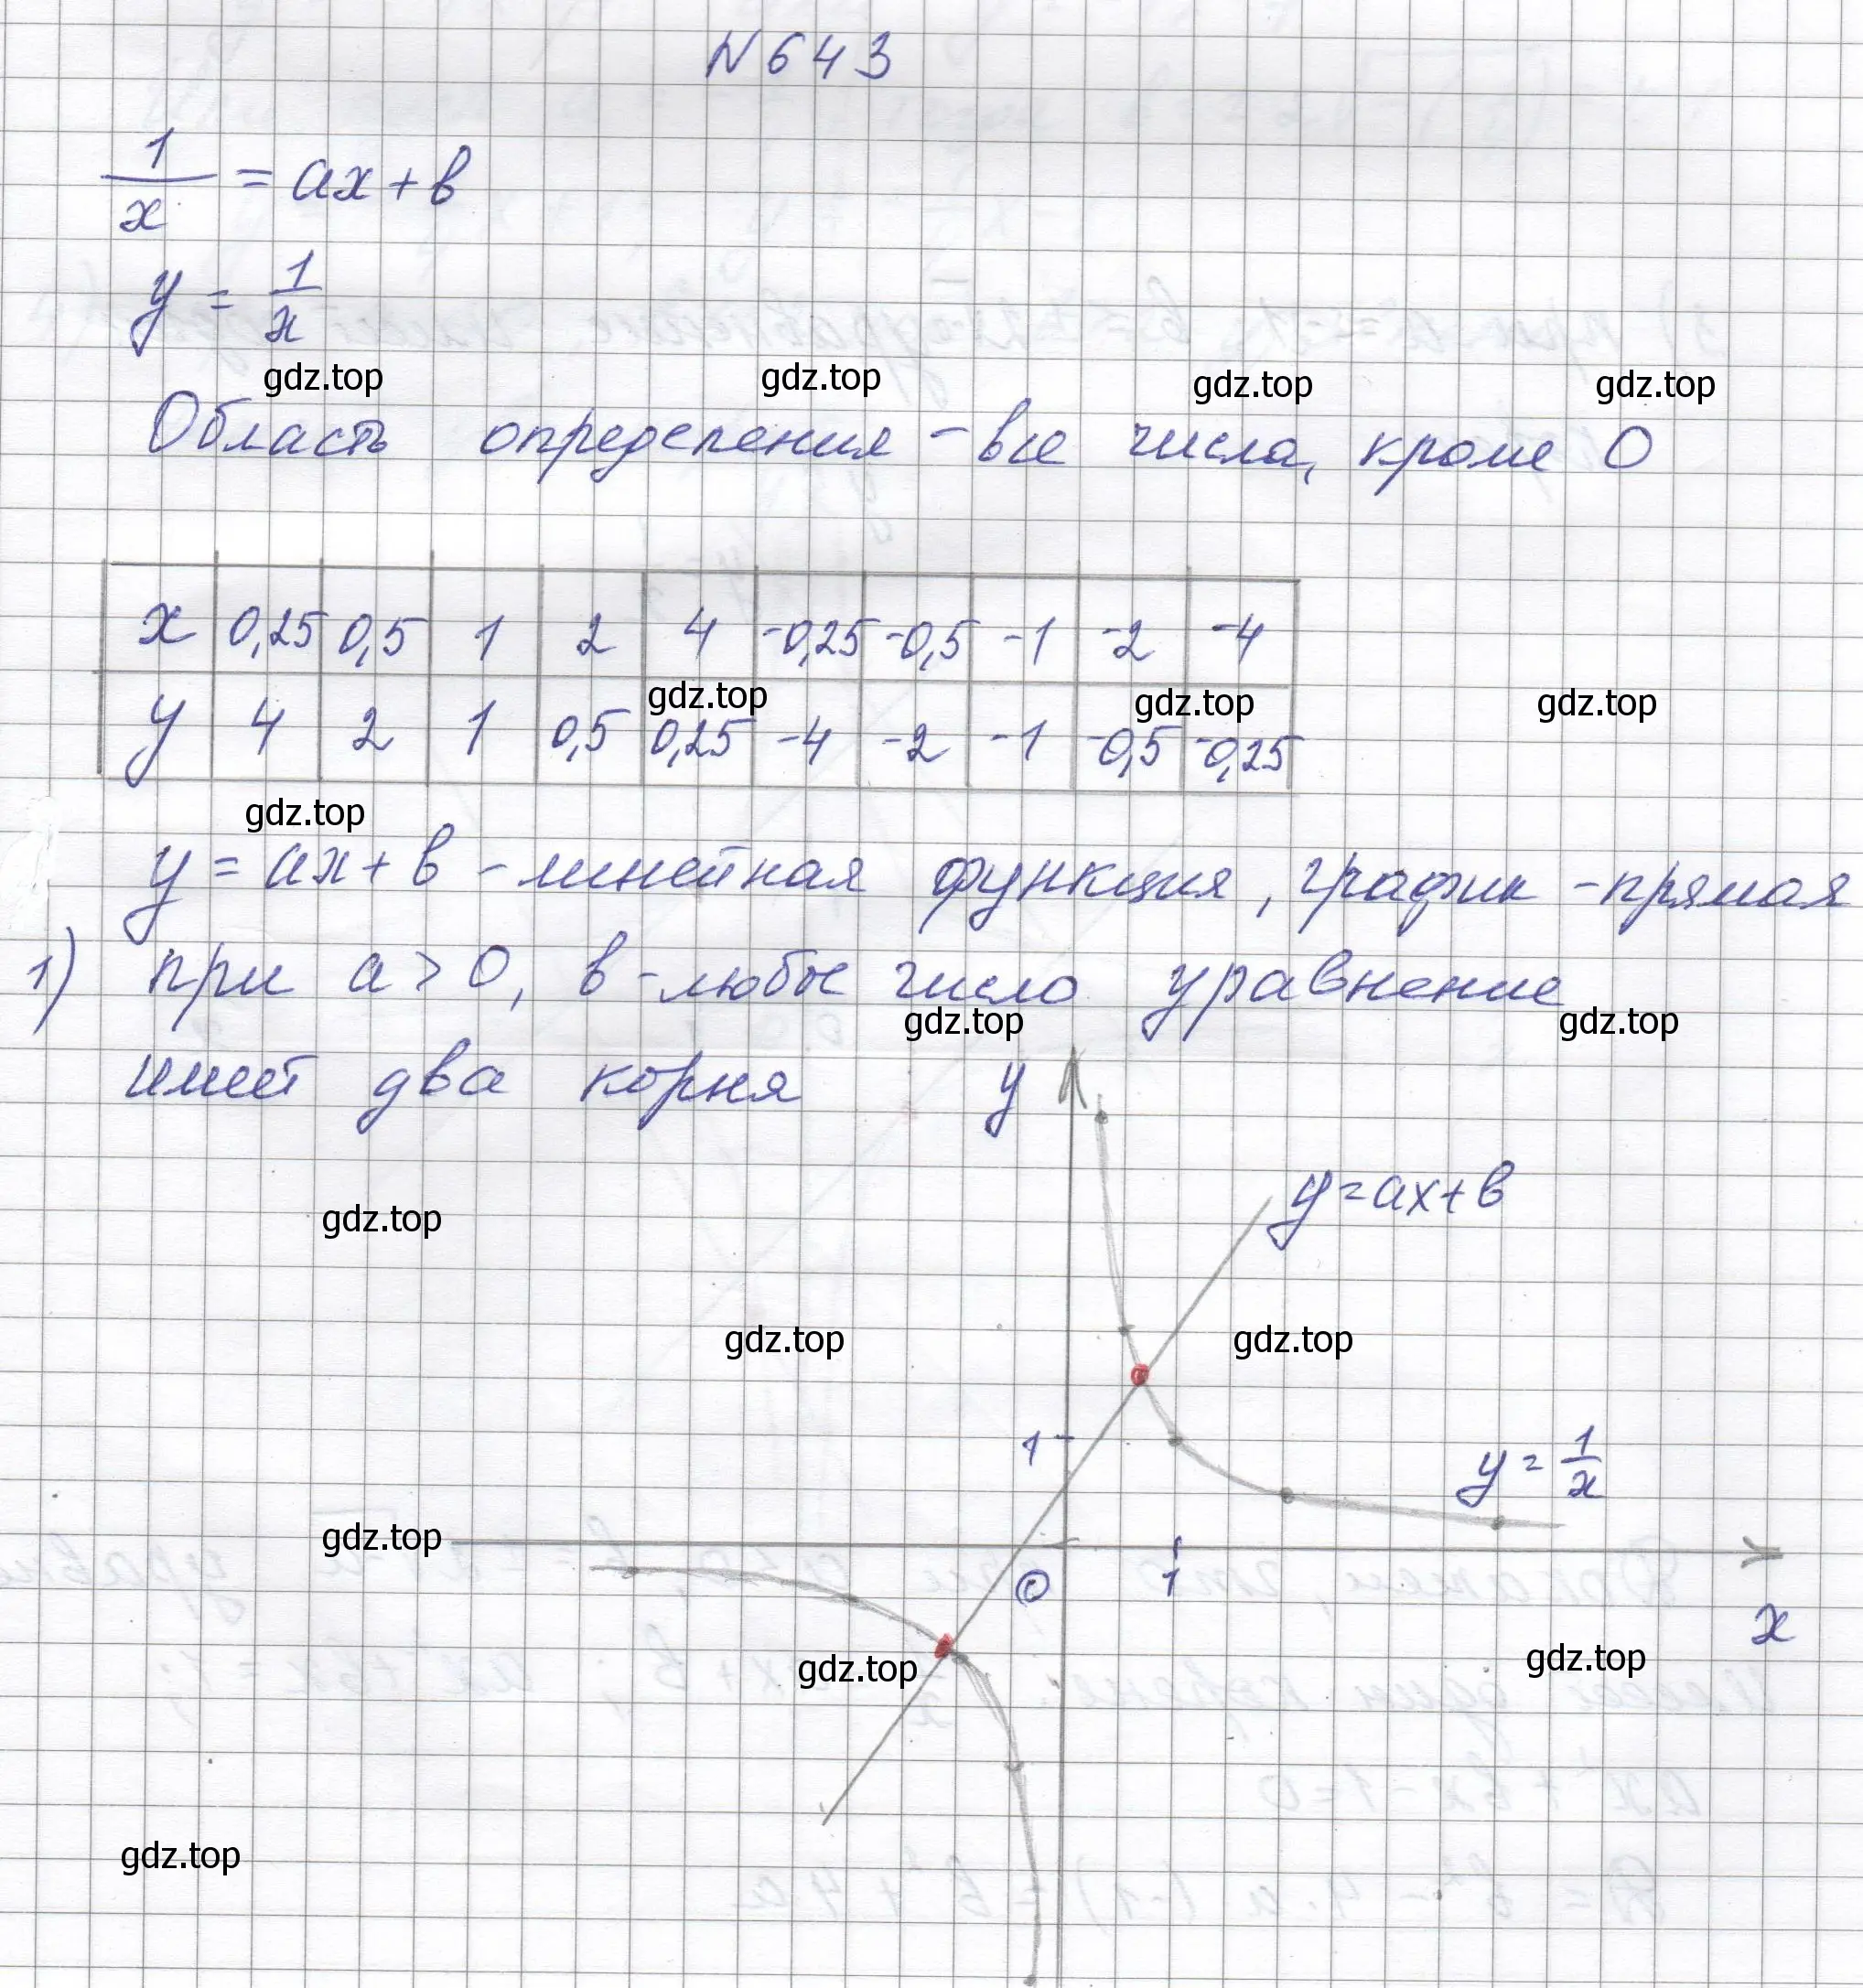 N 643
1/x = ax + b
y = 1/x
gdz.top gdz.top gdz.top gdz.top
Область определения - все числа, кроме 0
x 0,25 0,5 1 2 4 -0,25 -0,5 -1 -2 -4
gdz.top gdz.top gdz.top
y 4 2 1 0,5 0,25 -4 -2 -1 -0,5 -0,25
gdz.top
y = ax + b - линейная функция, график - прямая
1) при a > 0, b - любое число уравнение
gdz.top gdz.top
имеет два корня
y
y = ax + b
gdz.top
gdz.top gdz.top
1
y = 1/x
gdz.top
0 1
x
gdz.top gdz.top
gdz.top